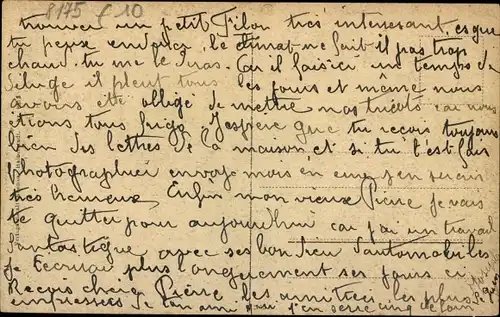 8175 £ 10
trouver un petit Filon très interessant, es que
tu peux endurer, le climat ne fait il pas trop
chaud tu me le diras. Car il fais ici un temps de
deluge il pleut tous les jours et même nous
avons ette obligé de mettre nos tricots car nous
etions tous frigo. J'espère que tu recois toujours
bien des lettres de la maison, et si tu t'est fait
photographier envoye mois en une j'en serais
très heureux. Enfin mon vieux Pierre je vais
te quitter pour aujourd'hui car j'ai un travail
fantastique avec ses bon dieu d'automobiles
je t'ecrirai plus longuement ses jours ci
Recois cher Pierre les amitiées les plus
empressées de ton ami qui j'en serre cinq de loin